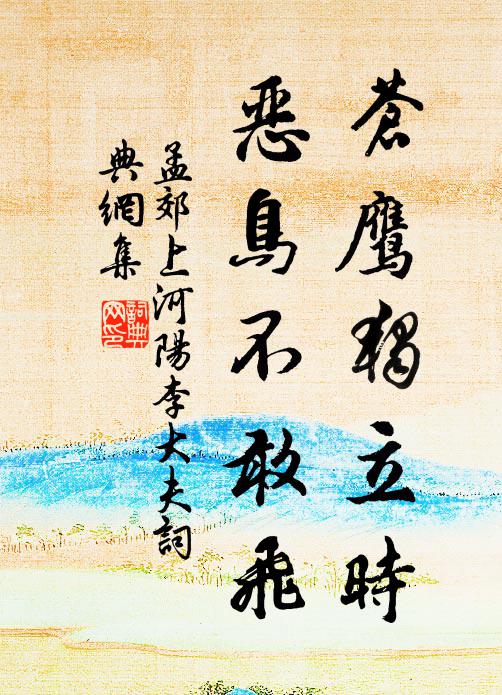 蒼鷹獨立時
惡鳥不敢飛
孟郊上河陽李大夫詞
典網集
詞典
网印